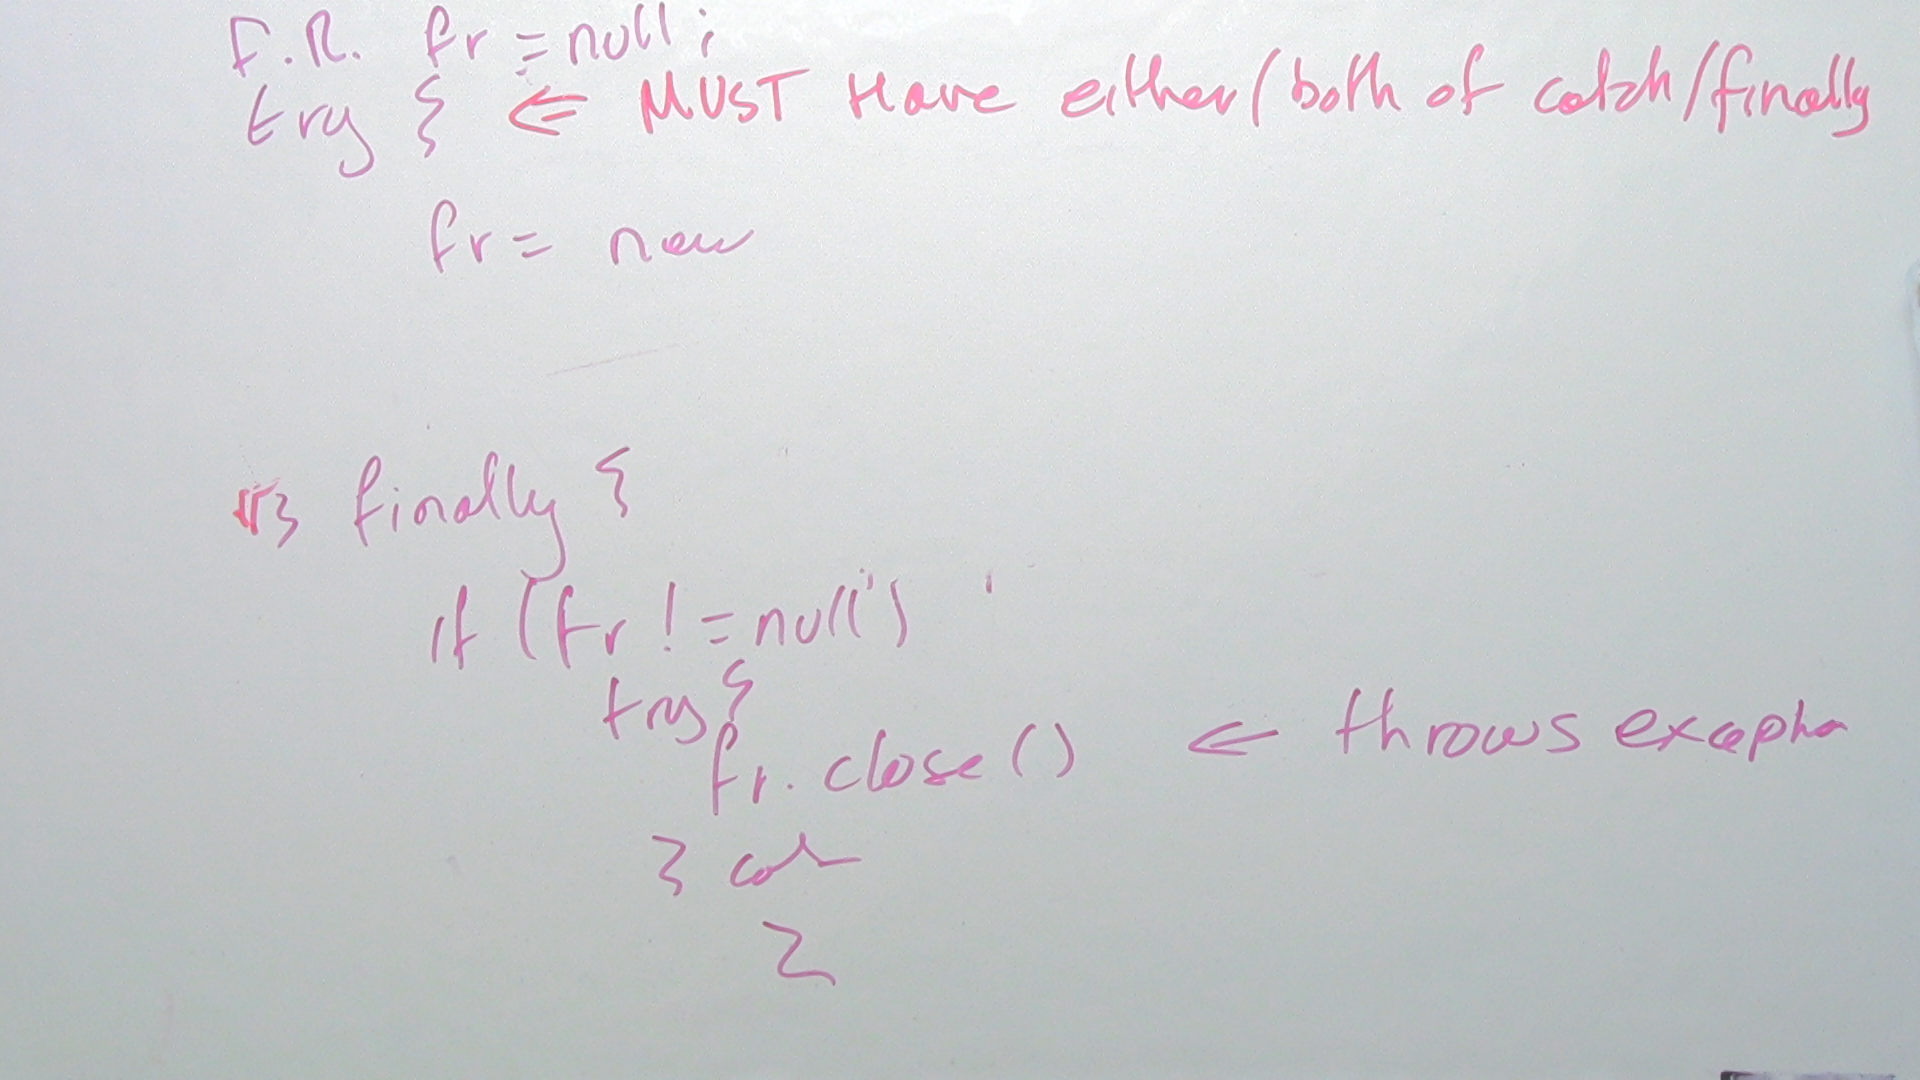 F.R. fr = null;
try { ⇐ MUST Have either/both of catch/finally
fr = new
} finally {
if (fr != null)
try {
fr.close() ← throws exceptio
} cat